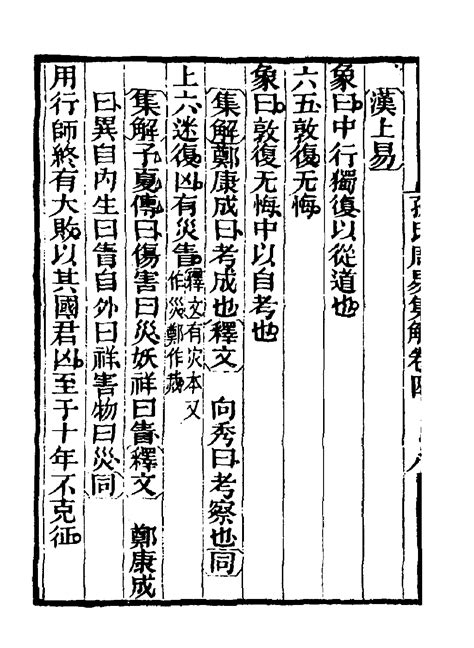 孫氏周易集解卷四
漢上易
象曰中行獨復以從道也
六五敦復无悔
象曰敦復无悔中以自考也
集解鄭康成曰考成也釋文 向秀曰考察也同
上六迷復凶有災眚釋文有灾本又
作災鄭作烖
集解子夏傳曰傷害曰災妖祥曰眚釋文 鄭康成
曰異自內生曰眚自外曰祥害物曰災同
用行師終有大敗以其國君凶至于十年不克征